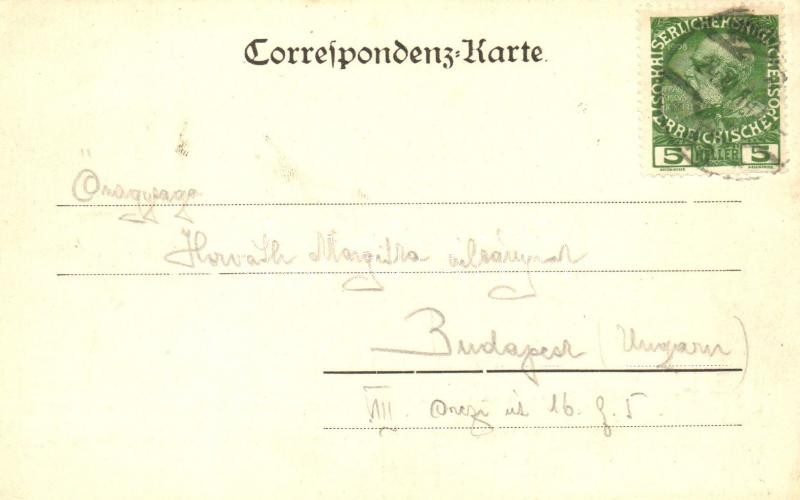 Correspondenz-Karte.
KAISERLICHE KÖNIGLICHE
ÖSTERREICHISCHE POST
5 HELLER 5
Önagysága
Horváth Margitka
Budapest (Ungarn)
VIII. Orczi út 16. f. 5.